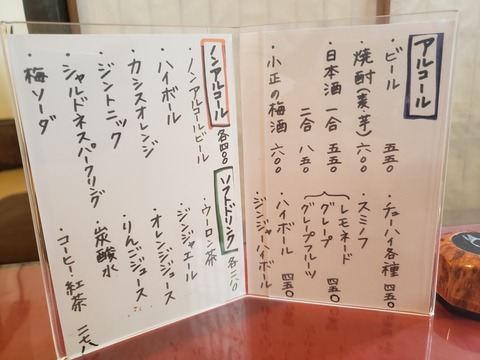 アルコール
・ビール 五五〇
・焼酎(麦、芋) 六〇〇
・日本酒 一合 五五〇
二合 八五〇
・小正の梅酒 六〇〇
・チューハイ各種 四五〇
・スミノフ
レモネード
グレープ 四五〇
グレープフルーツ
・ハイボール 四五〇
・ジンジャーハイボール
ノンアルコール 各四〇〇
・ノンアルコールビール
・ハイボール
・カシスオレンジ
・ジントニック
・シャルドネスパークリング
・梅ソーダ
ソフトドリンク
・ウーロン茶
・ジンジャエール
・オレンジジュース
・りんごジュース
・炭酸水
・コーヒー・紅茶